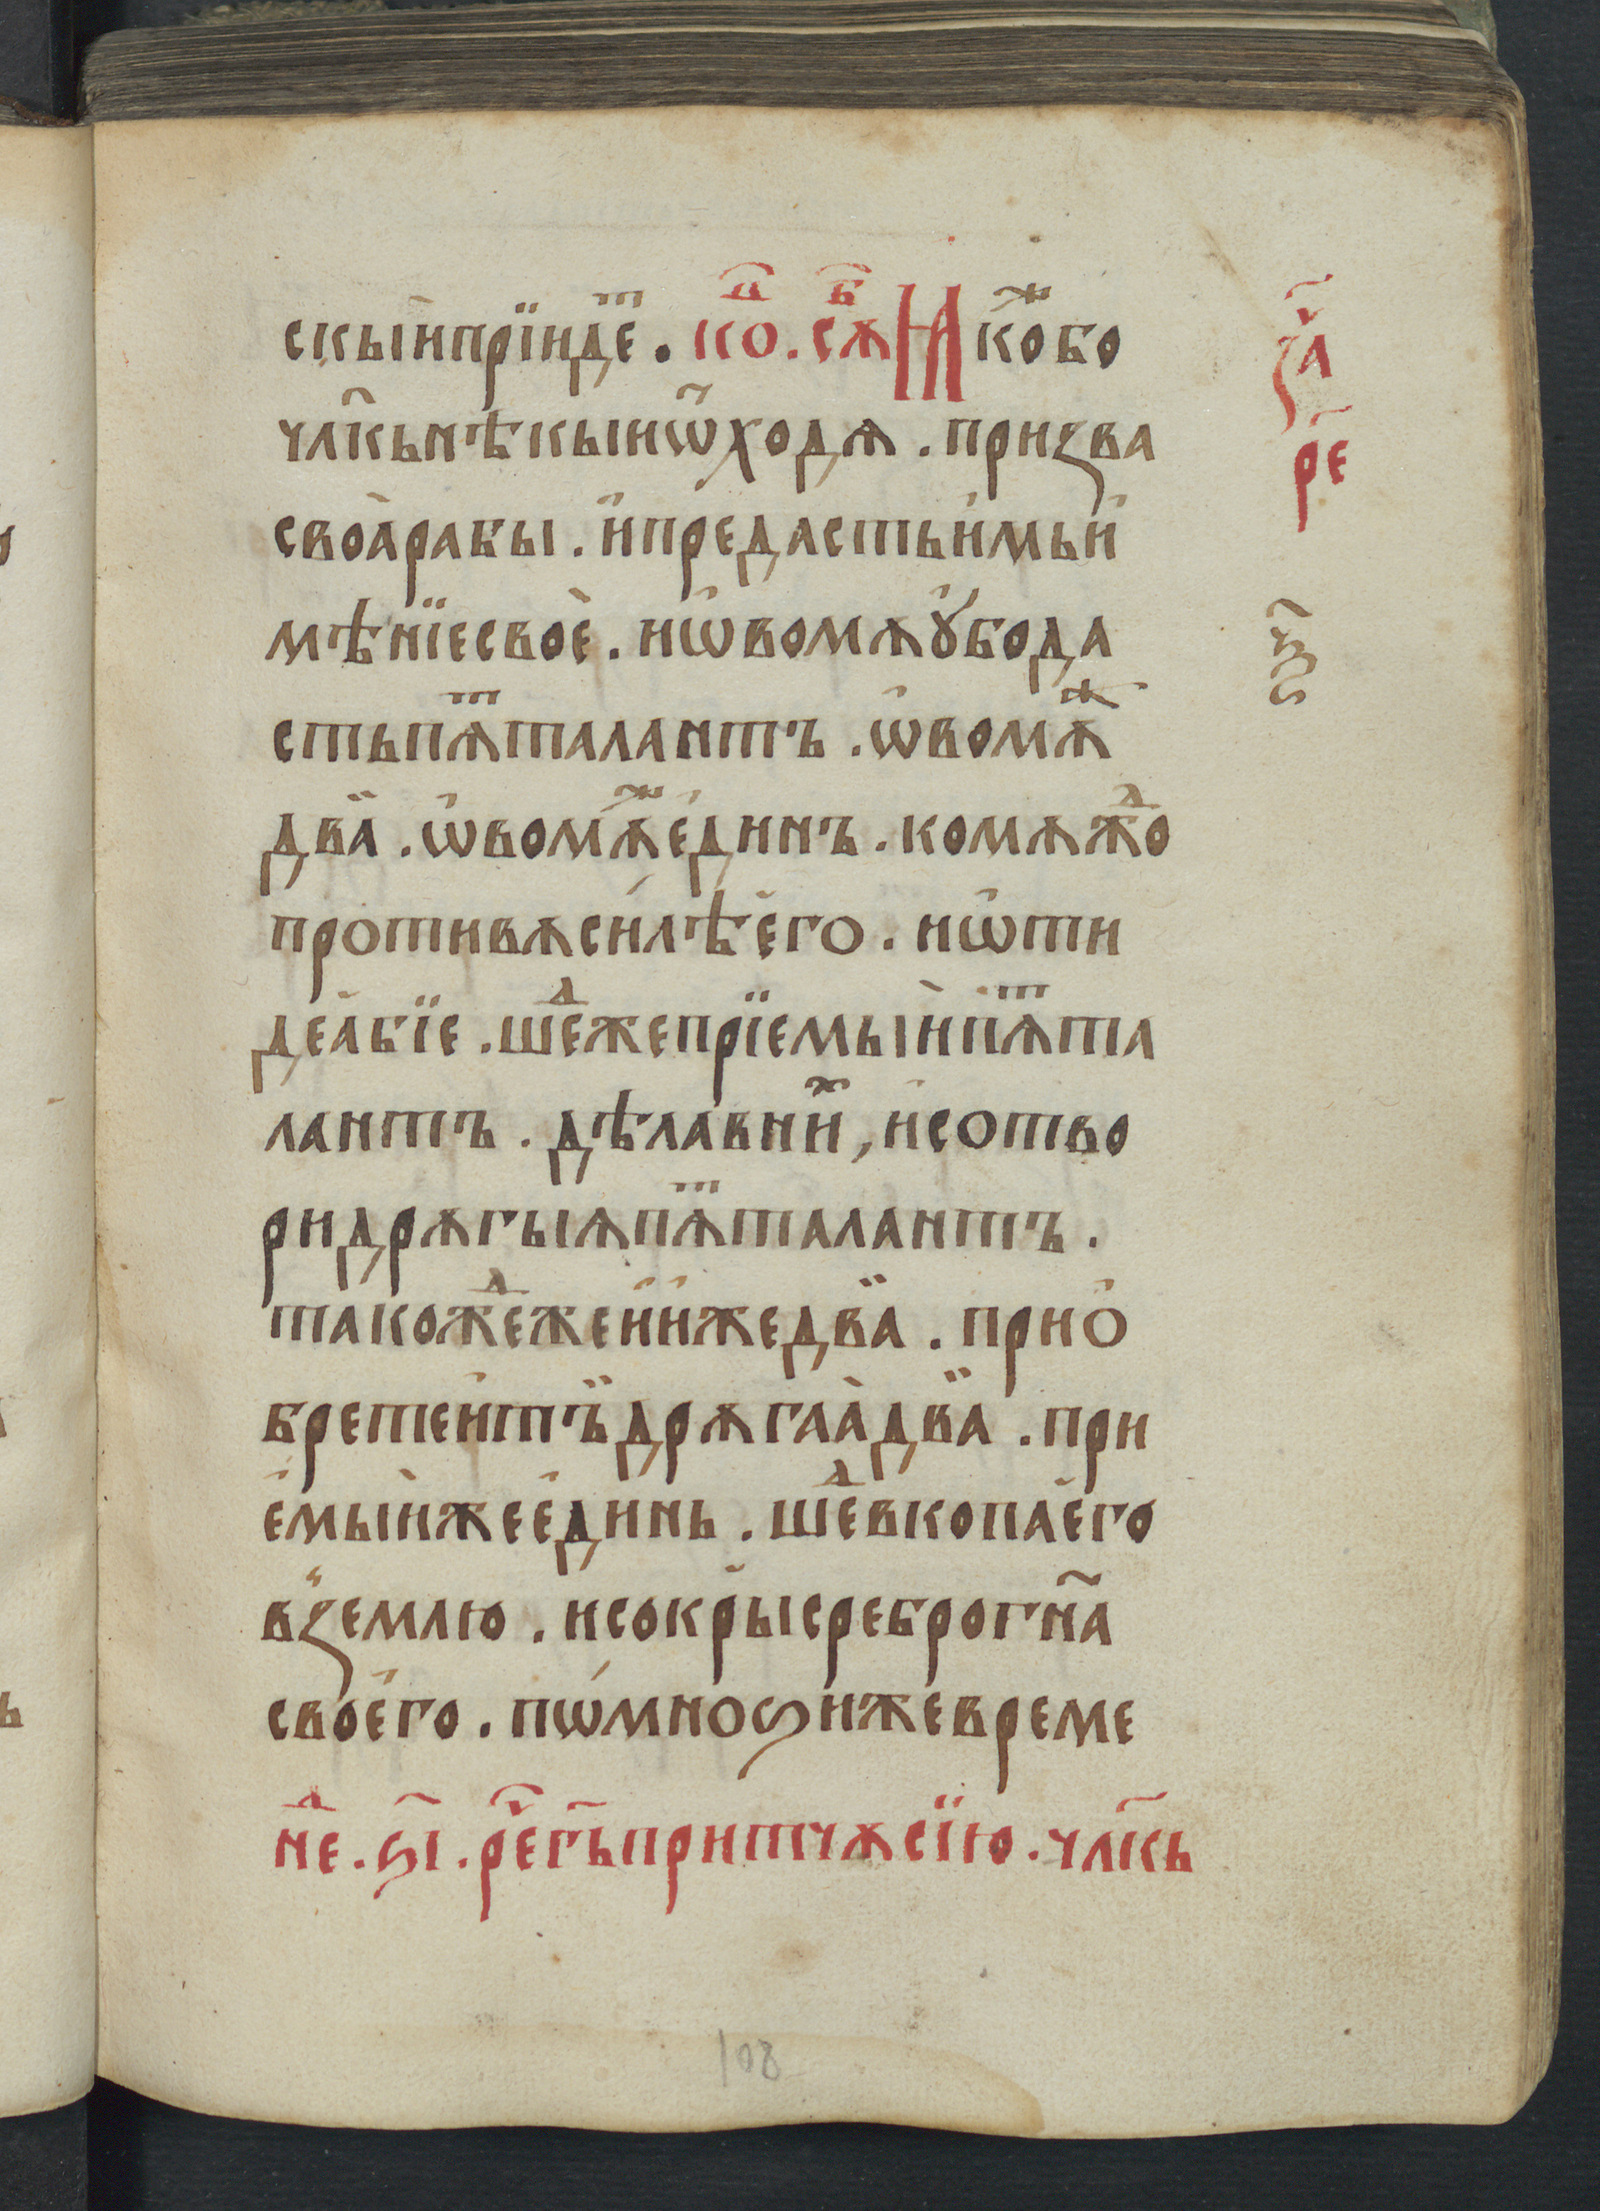 скы́и прїидеⷮ҇. коⷩ҇. сѫⷠ҇ Ꙗкоⷤ бо
чл҃кь нѣкы́и ѿходѧ. призва
своѧ̀ рабы. и҆ предасть и҆мь и҆
мѣнїе своѐ. и ѡ҆вомѫ ᲂу҆бо да
сть пѧⷮ талантъ. ѡ҆вомѫⷤ
два̏. ѡ҆вомѫⷤ е҆динъ. комѫжⷣо
противѫ си́лѣ е҆го. и ѿи
де а҆бїе. шеⷣ же прїемы́и пѧⷮ та
лантъ. дѣла в ниⷯ, и҆ сотво
ри дрѫгыѧ пѧⷮ талантъ.
такожⷣе же и҆ и҆же два̏. прио҆
брете и҆ тъ̏ дрѫгаа̀ два̏. при
е҆мы́и же е҆динь. шеⷣ вкопа е҆го
в̾ землю. и сокры̀ сребро г҃на
своего. по мноѕи же време
неⷣ. ѕ҃і. реⷱ҇ г҃ь притчѫ сїю. чл҃кь
заⷱ҇
р҃е
с҃ѯѕ
108